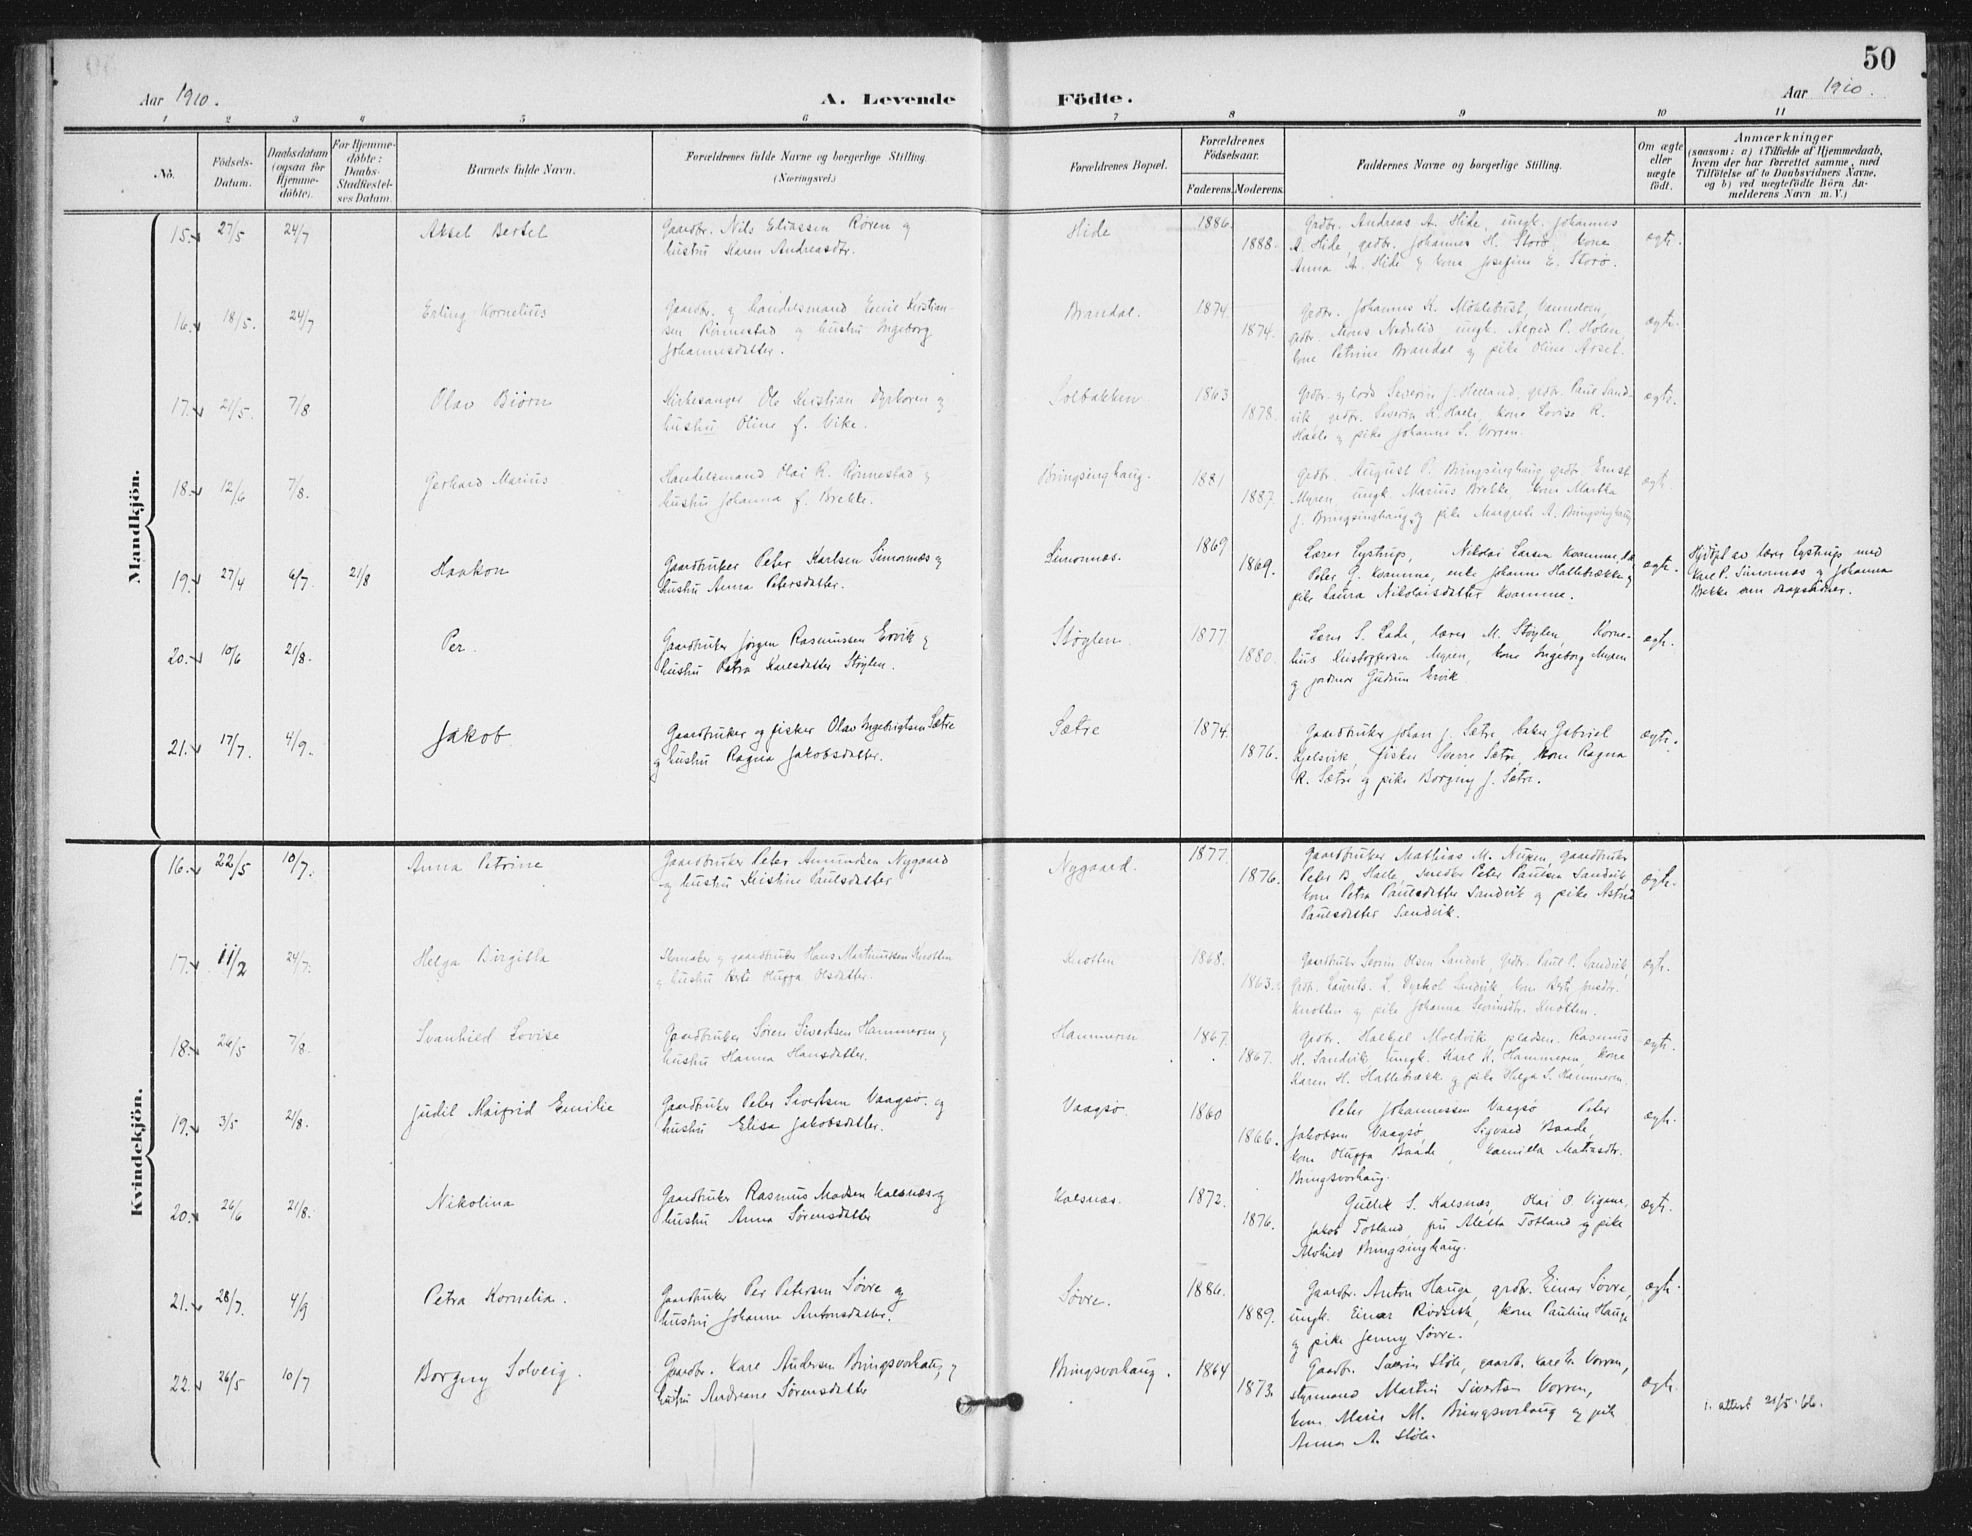 50
Aar 1910.
A. Levende Födte.
Aar 1910.
1 2 3 4 5 6 7 8 9 10 11
No.
Födsels-Datum.
Daabsdatum (ogsaa for Hjemme-döbte).
For Hjemme-döbte: Daabs-Stadfæstelses Datum.
Barnets fulde Navn.
Forældrenes fulde Navne og borgerlige Stilling.
(Næringsvei.)
Forældrenes Bopæl.
Forældrenes Födselsaar.
Faderens. Moderens.
Faddernes Navne og borgerlige Stilling.
Om ægte eller uægte födt.
Anmærkninger
(saasom: a) i Tilfælde af Hjemmedaab, hvem der har forrettet samme, med Tilföielse af to Daabsvidners Navne, og b) ved uægtefödte Börn Anmelderens Navn m. V.)
Mandkjön.
15. 27/5 24/7 Aksel Bertel
Gaardbr. Nils Eliassen Røren og
hustru Karen Andreasdtr.
Hide 1886. 1888.
Grdbr. Andreas A. Hide, ungk. Johannes
A. Hide, grdbr. Johannes H. Storø, kone
Anna A. Hide og kone Josefine E. Storø.
ægte.
16. 18/5. 24/7 Erling Kornelius
Gaardbr. og handelsmand Emil Kristian-
sen Rönnestad og hustru Ingeborg
Johannesdatter.
Brandal. 1874. 1874.
Grdbr. Johannes K. Möklebust,
grdbr. Nedrelid ungk. Alfred P. Holen
kone Petrine Brandal og pike Oline Arset.
ægte.
17. 21/5. 7/8 Olav Biörn
Kirkesanger Ole Kristian Dyrkoren og
hustru Oline f. Vike.
Solbakken 1863 1878.
Grdbr. og lods Severin J. Helland, grdbr. Paul Sand-
vik grdbr. Severin K. Hasle, kone Lovise K.
Hasle og pike Johanne S. Vorren.
ægte.
18. 12/6 7/8. Gerhard Marius
Handelsmand Olai R. Rönnestad og
hustru Johanna f. Brekke.
Bringsinghaug. 1881 1887.
Grdbr. August P. Bringsinghaug, grdbr. Ernst
Myren, ungk. Marius Brekke, kone Martha
J. Bringsinghaug og pike Margrete A. Bringsinghaug
ægte.
19. 27/4 6/7. 21/8 Haakon
Gaardbruker Peter Karlsen Simonnæs og
hustru Anna Petersdatter.
Simonnæs. 1869 1869.
Lærer Lystrup, Nikolai Larsen Kvamme,
Peter J. Kvamme, enke Johanne Hallebrække og
pike Laura Nikolaisdatter Kvamme.
ægte.
Hjdöpt av lærer Lystrup med
Karl P. Simonnæs og Johanna
Brekke som daapsvidner.
20. 10/6 21/8. Per.
Gaardbruker Jørgen Rasmussen Ervik og
hustru Petra Karlsdatter Støylen.
Støylen. 1877. 1880.
Lærer S. Lade, lærer M. Støylen, Korne-
lius Kristoffersen Myren, kone Ingeborg Myren
og jordmor Gudrun Ervik.
ægte.
21. 17/7. 4/9. Jakob.
Gaardbruker og fisker Olav Ingebrigtsen Sætre
og hustru Ragna Jakobsdatter.
Sætre 1874. 1876.
Gaardbruker Johan J. Sætre, baker Gabriel
Kjelsvik, fisker Sverre Sætre, kone Ragna
R. Sætre og pike Borgny J. Sætre.
ægte.
Kvindekjön.
16. 22/5 10/7. Anna Petrine
Gaardbruker Peter Amundsen Nygaard
og hustru Kristine Paulsdatter
Nygaard. 1877. 1876.
Gaardbruker Mathias M. Nupen, gaardbruker
Peter B. Hasle, Peter Paulsen Sandvik,
kone Petra Paulsdatter Sandvik og pike Astrid
Paulsdatter Sandvik.
ægte.
17. 11/2 24/7. Helga Birgitta
Skomaker og gaardbruker Hans Martinussen Knotten
og hustru Berte Oluffa Olsdatter.
Knotten 1868. 1863.
Gaardbruker Severin Olsen Sandvik, grdbr. Paul P. Sandvik,
grdbr. Laurits L. Dyrhol Sandvik, kone Berte Jensdtr.
Knotten og pike Johanna Severinsdtr. Knotten.
ægte.
18. 24/5 7/8. Svanhild Lovise
Gaardbruker Søren Sivertsen Hammeren og
hustru Hanna Hansdatter.
Hammeren 1867. 1867.
Grdbr. Moldvik, pladsm. Rasmus
H. Sandvik, ungk. Karl K. Hammeren, kone
Karen H. Hallebrække og pike Helga S. Hammeren.
ægte.
19. 3/5 21/8. Judit Maifrid Emilie
Gaardbruker Peter Sivertsen Vaagsø og
hustru Elisa Jakobsdatter.
Vaagsø. 1860 1866.
Peter Johannessen Vaagsø Peter
Jakobsen Vaagsø, Sigvard Baade,
kone Oluffa Baade, Kamilla Matiasdtr.
Bringsvorhaug.
ægte.
20. 26/6 21/8. Nikolina
Gaardbruker Rasmus Madsen Kalsnæs og
hustru Anna Sørensdatter
Kalsnæs. 1872. 1876.
Gullik S. Kalsnæs, Olai O. Vigene,
Jakob Totland, fru Aletta Totland og pike
Alvhild Bringsinghaug.
ægte.
21. 28/7. 4/9 Petra Kornelia.
Gaardbruker Per Petersen Søvre og
hustru Johanne Antonsdatter.
Søvre. 1886. 1889.
Gaardbr. Anton Hauge, grdbr. Einar Søvre,
ungk. Einar Rødseth, kone Pauline Hauge
og pike Jenny Søvre.
ægte.
22. 26/5 10/7 Borgny Solveig.
Gaardbr. Karl Andersen Bringsvorhaug og
hustru Andreane Sørensdatter
Bringsvorhaug. 1864 1873.
Gaardbr. Severin Støle, gaardbr. Karl E. Vorren,
styrmand Martin Sivertsen Vorren,
kone Marie M. Bringsvorhaug og pike
Anna A. Støle.
ægte.
1. attest 21/5-66.